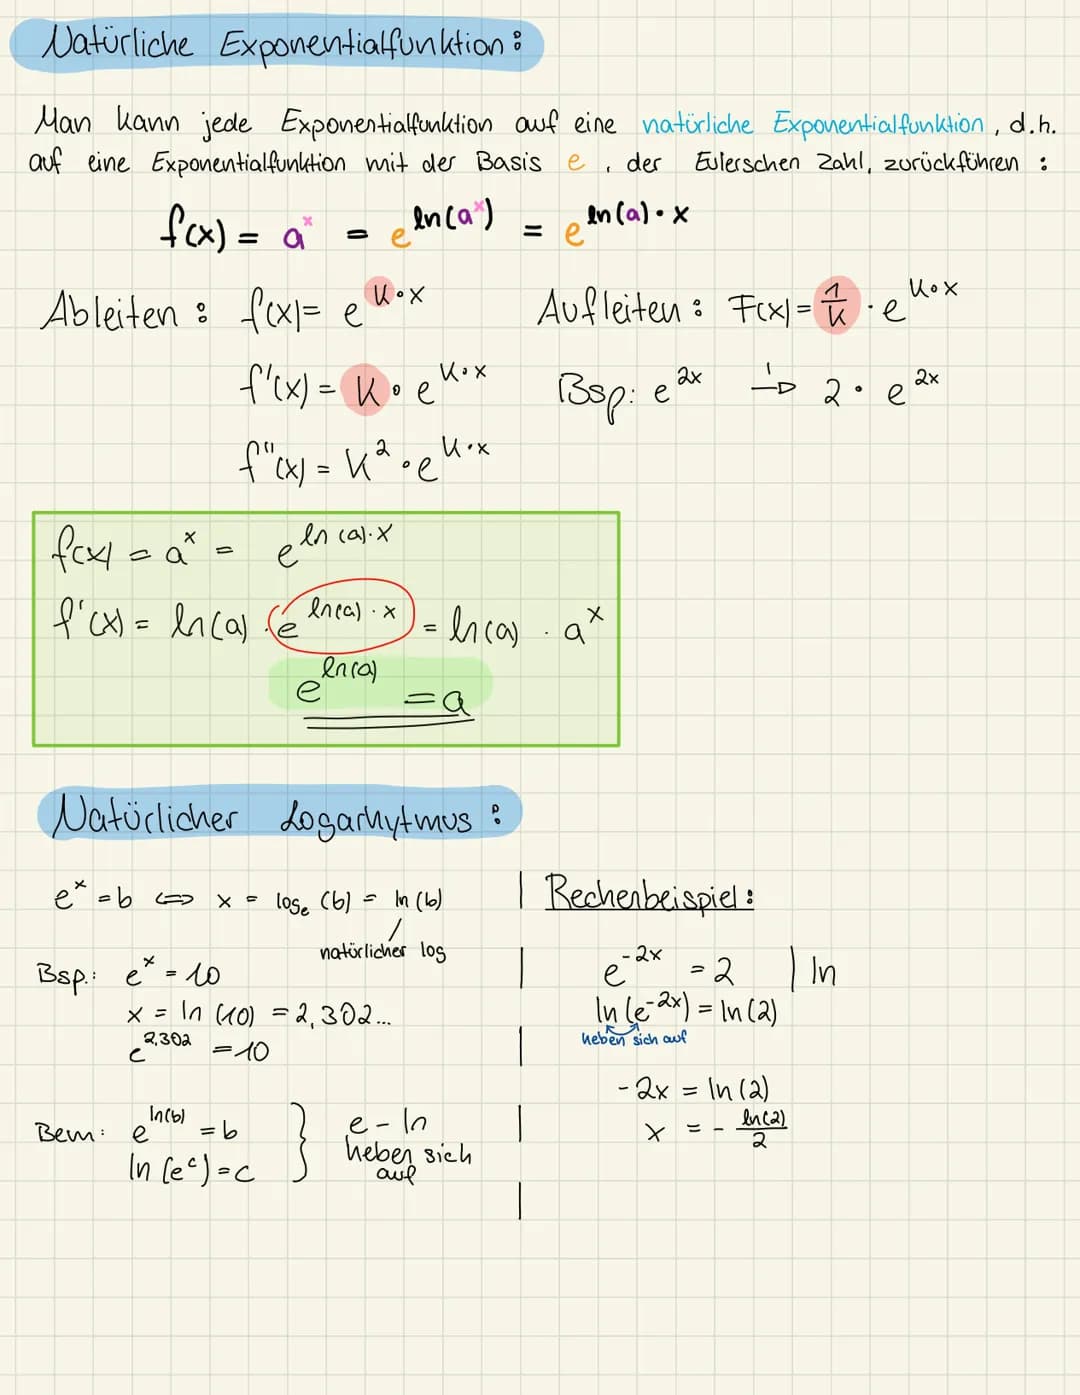 Natürliche Exponentialfunktion:
Man kann jede Exponentialfunktion auf eine natürliche Exponentialfunktion, d.h.
auf eine Exponentialfunktion mit der Basis e, der Eulerschen Zahl, zurückführen:
f(x) = a^x = e^(ln(a^x)) = e^(ln(a)·x)
Ableiten: f(x) = e^(k·x)
f'(x) = k·e^(k·x)
f''(x) = k²·e^(k·x)
Aufleiten: F(x) = 1/k · e^(k·x)
Bsp: e^(2x) →' 2·e^(2x)
f(x) = a^x = e^(ln(a)·x)
f'(x) = ln(a) · e^(ln(a)·x) = ln(a) · a^x
e^(ln(a)) = a
Natürlicher Logarhytmus:
e^x = b ⟺ x = log_e (b) = ln(b)
natürlicher log
Bsp.: e^x = 10
x = ln(10) = 2,302...
e^(2,302) = 10
Bem: e^(ln(b)) = b
ln(e^c) = c
} e - ln
heben sich
auf
Rechenbeispiel:
e^(-2x) = 2 | ln
ln(e^(-2x)) = ln(2)
heben sich auf
-2x = ln(2)
x = - ln(2)/2